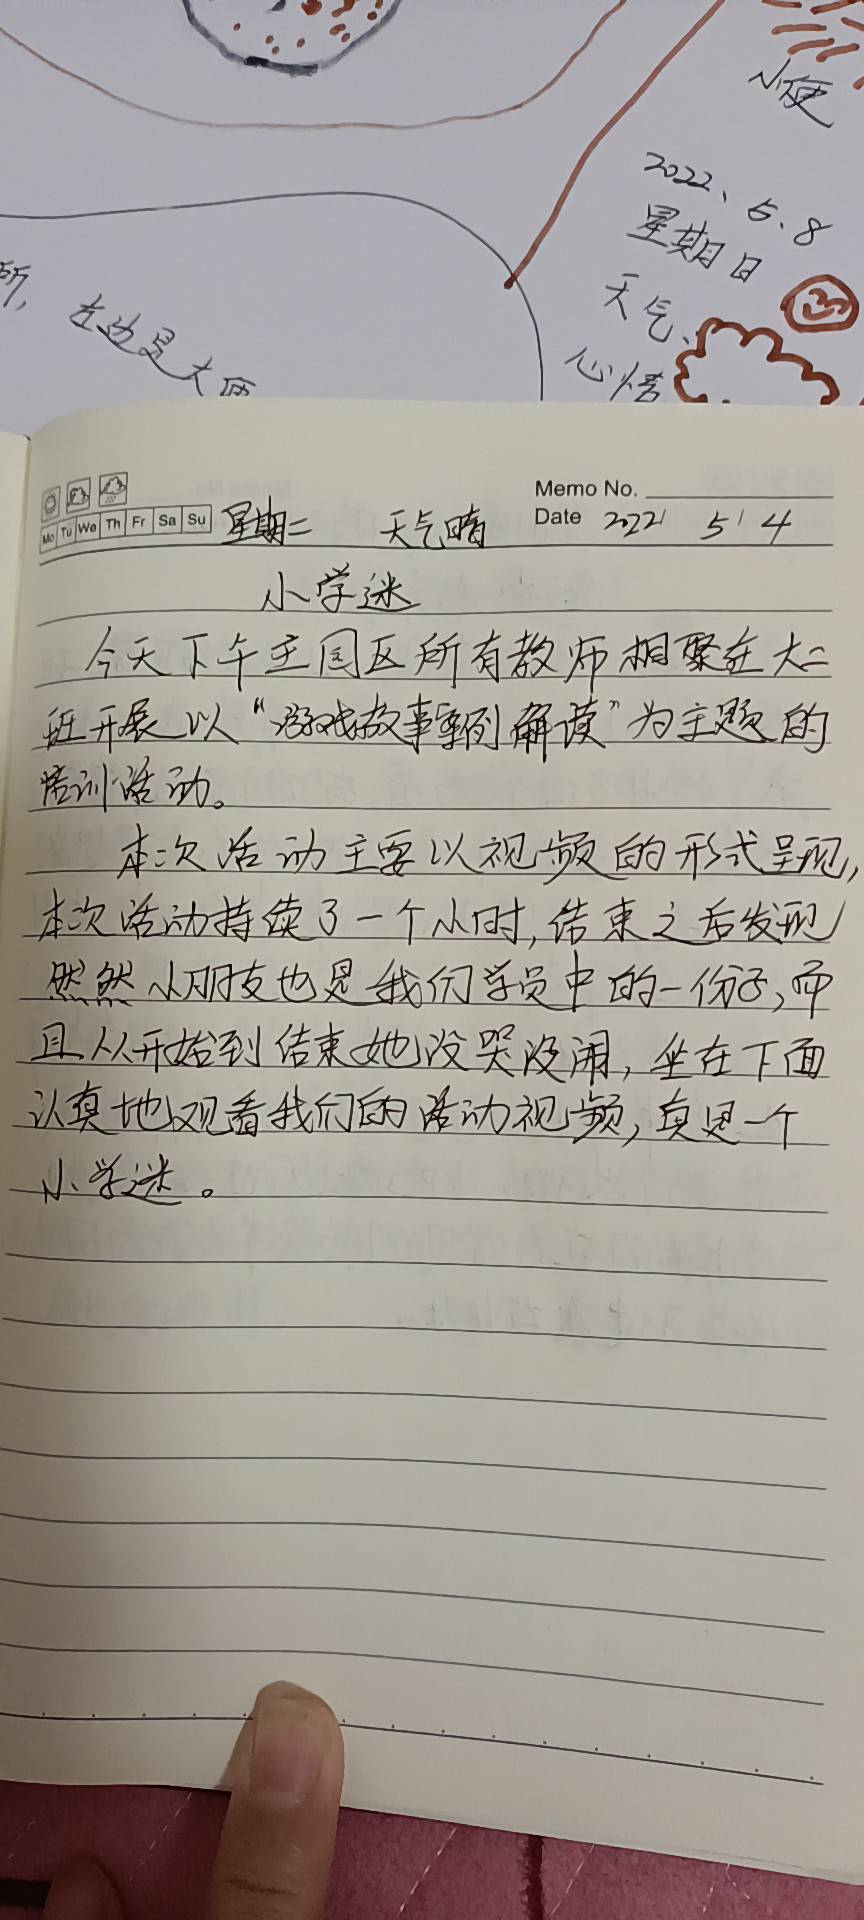 小便
2022、5、8
星期日
天气、
心情
所,左边是大便
Memo No.
Mo Tu We Th Fr Sa Su 星期二 天气晴 Date 2022 5 4
小学迷
今天下午主园区所有教师相聚在大二
班开展以“游戏故事案例解读”为主题的
培训活动。
本次活动主要以视频的形式呈现,
本次活动持续了一个小时,结束之后发现
然然小朋友也是我们学员中的一份子,而
且从开始到结束她没哭没闹,坐在下面
认真地观看我们的活动视频,真是一个
小学迷。